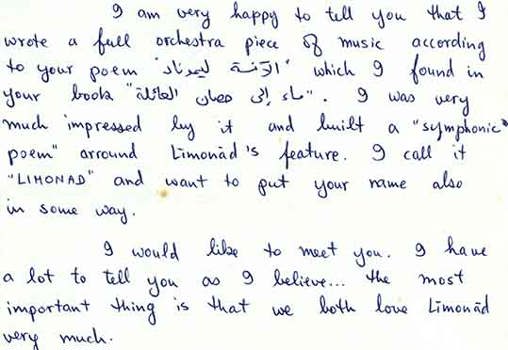 I am very happy to tell you that I
wrote a full orchestra piece of music according
to your poem "الآنسة ليموناد" which I found in
your book "ماء إلى حصان العائلة". I was very
much impressed by it and built a "symphonic
poem" arround Līmonād's feature. I call it
"LIMONAD" and want to put your name also
in some way.
I would like to meet you. I have
a lot to tell you as I believe... the most
important thing is that we both love Līmonād
very much.